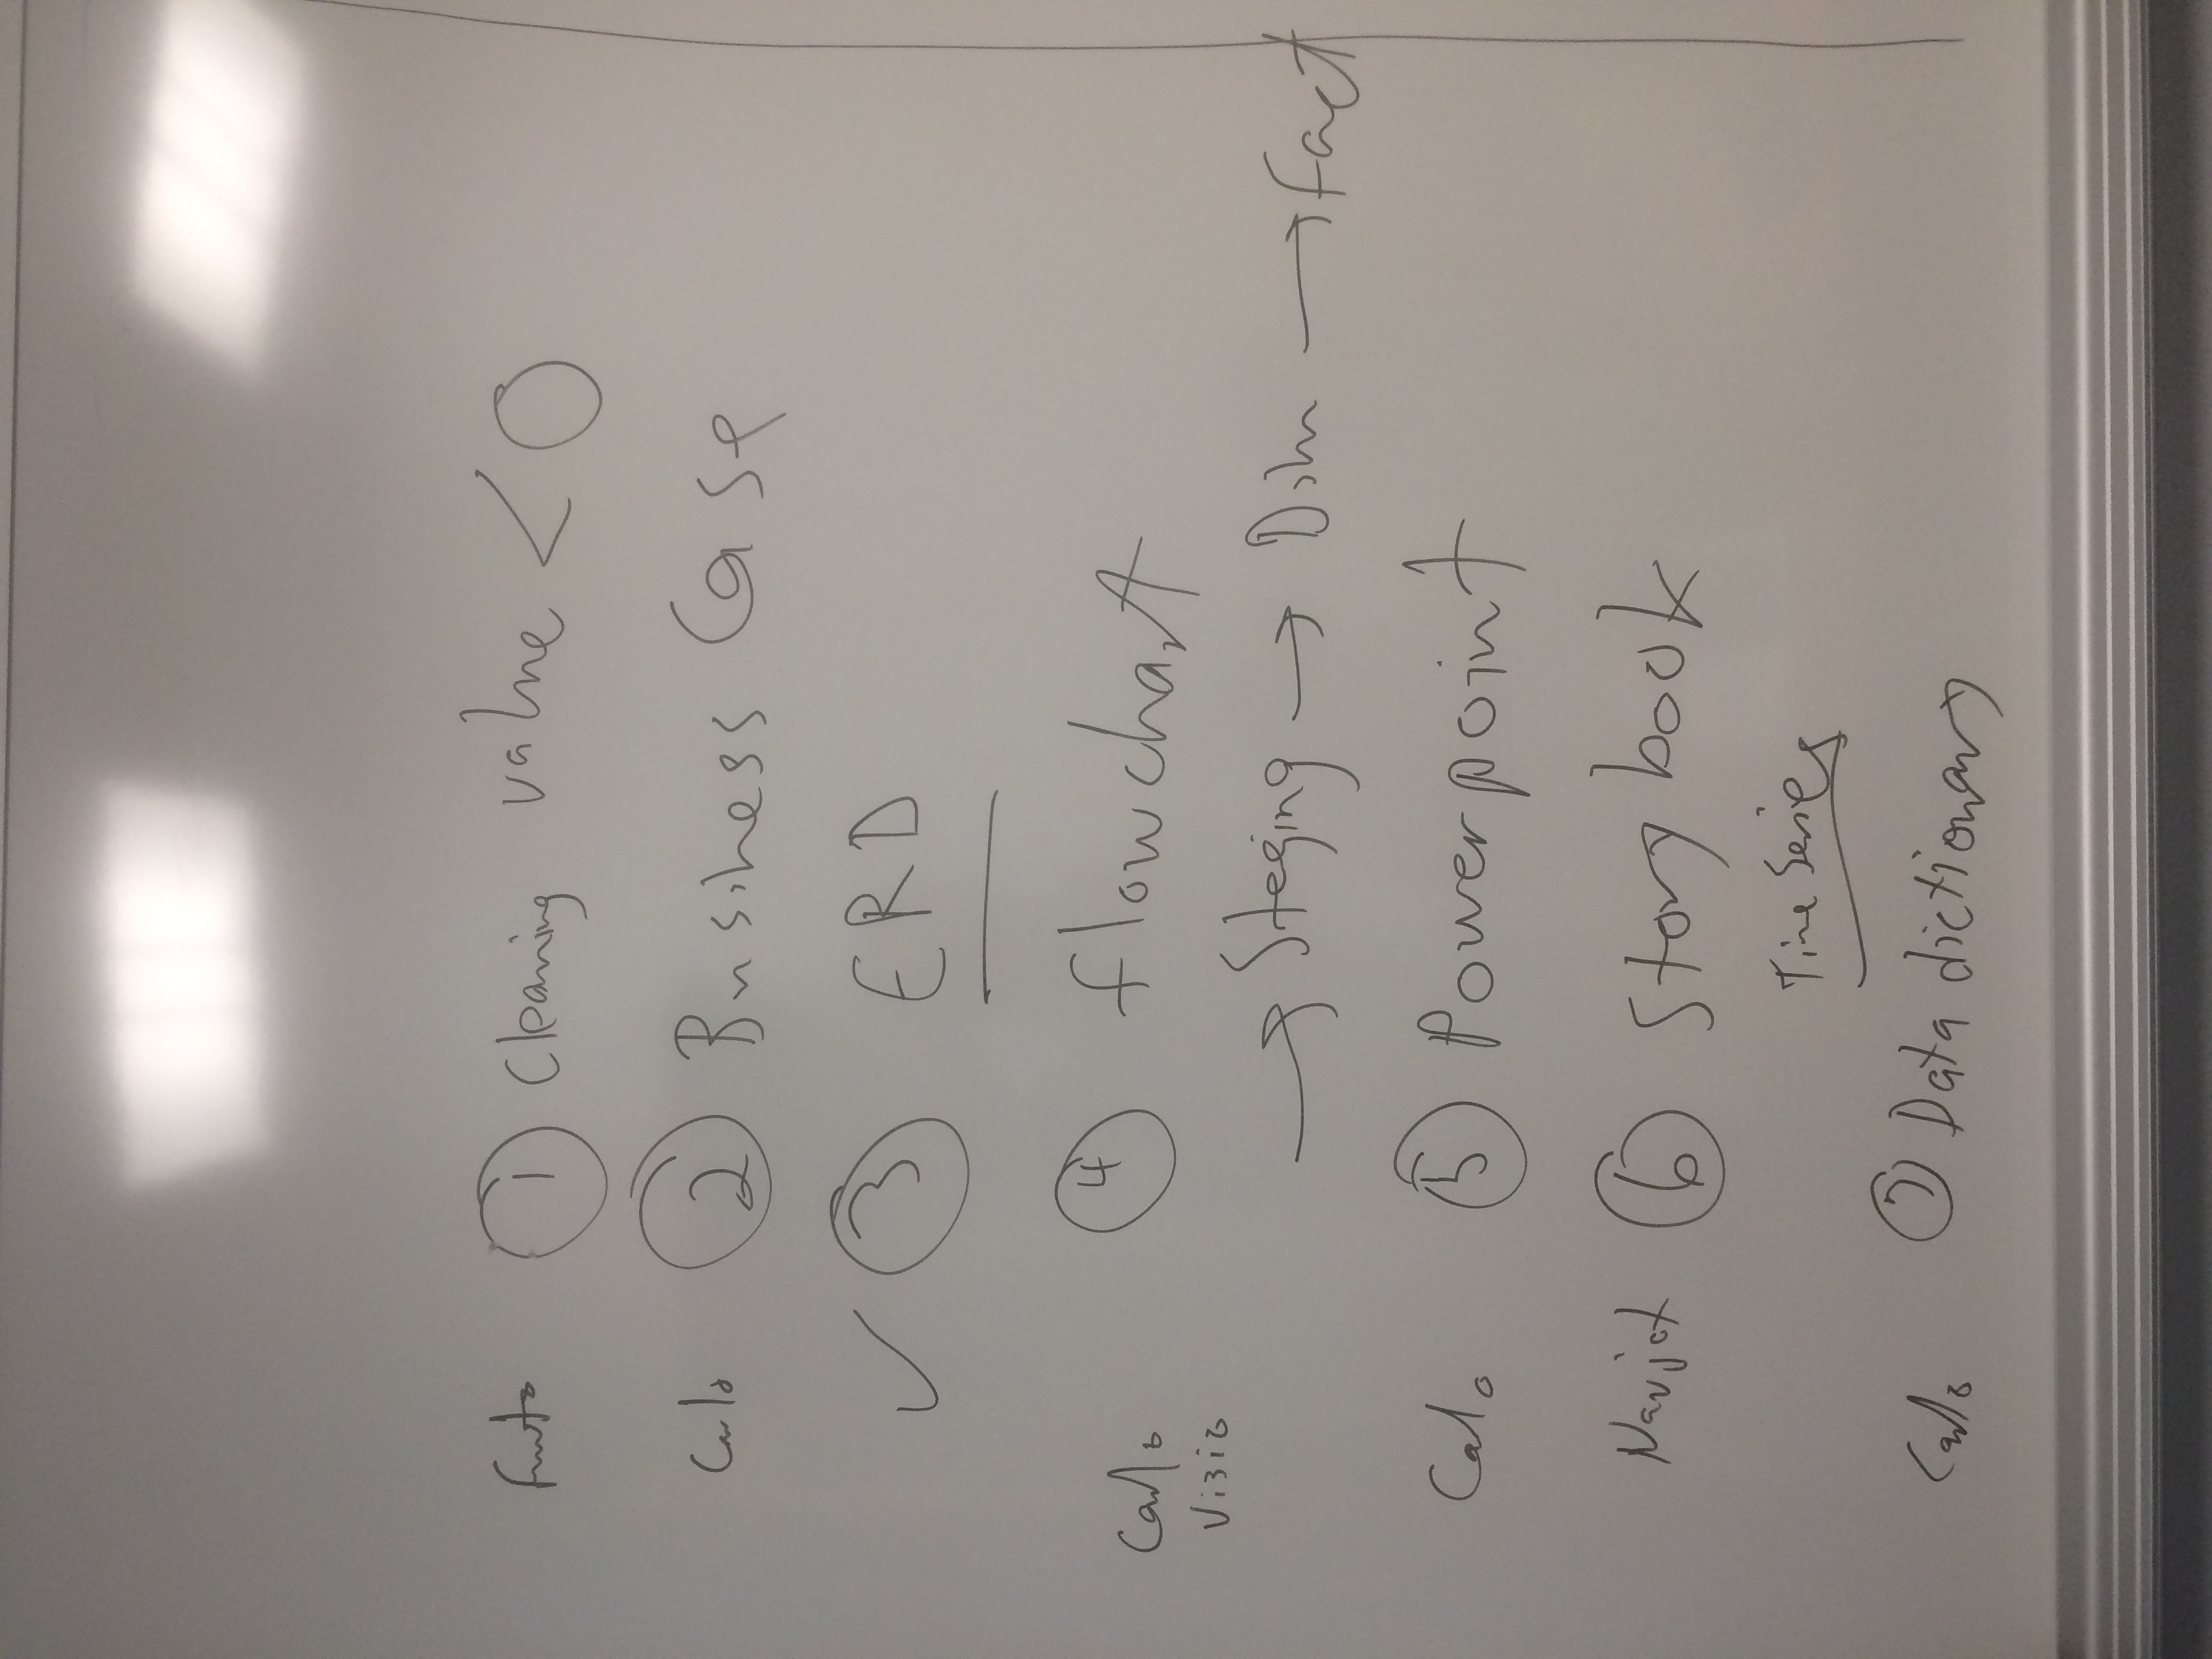 Futo ① Cleaning value < 0
Carlo ② Business Case
✓ ③ ERD
④ flowchart
Carlo
Visio
→ Steging → Dim → Fact
Calo ⑤ Powerpoint
Navjot ⑥ Story book
Time Series
Carlo ⑦ Data dictionary